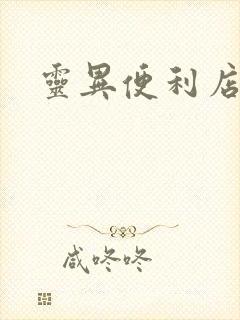 靈異便利店
咸咚咚